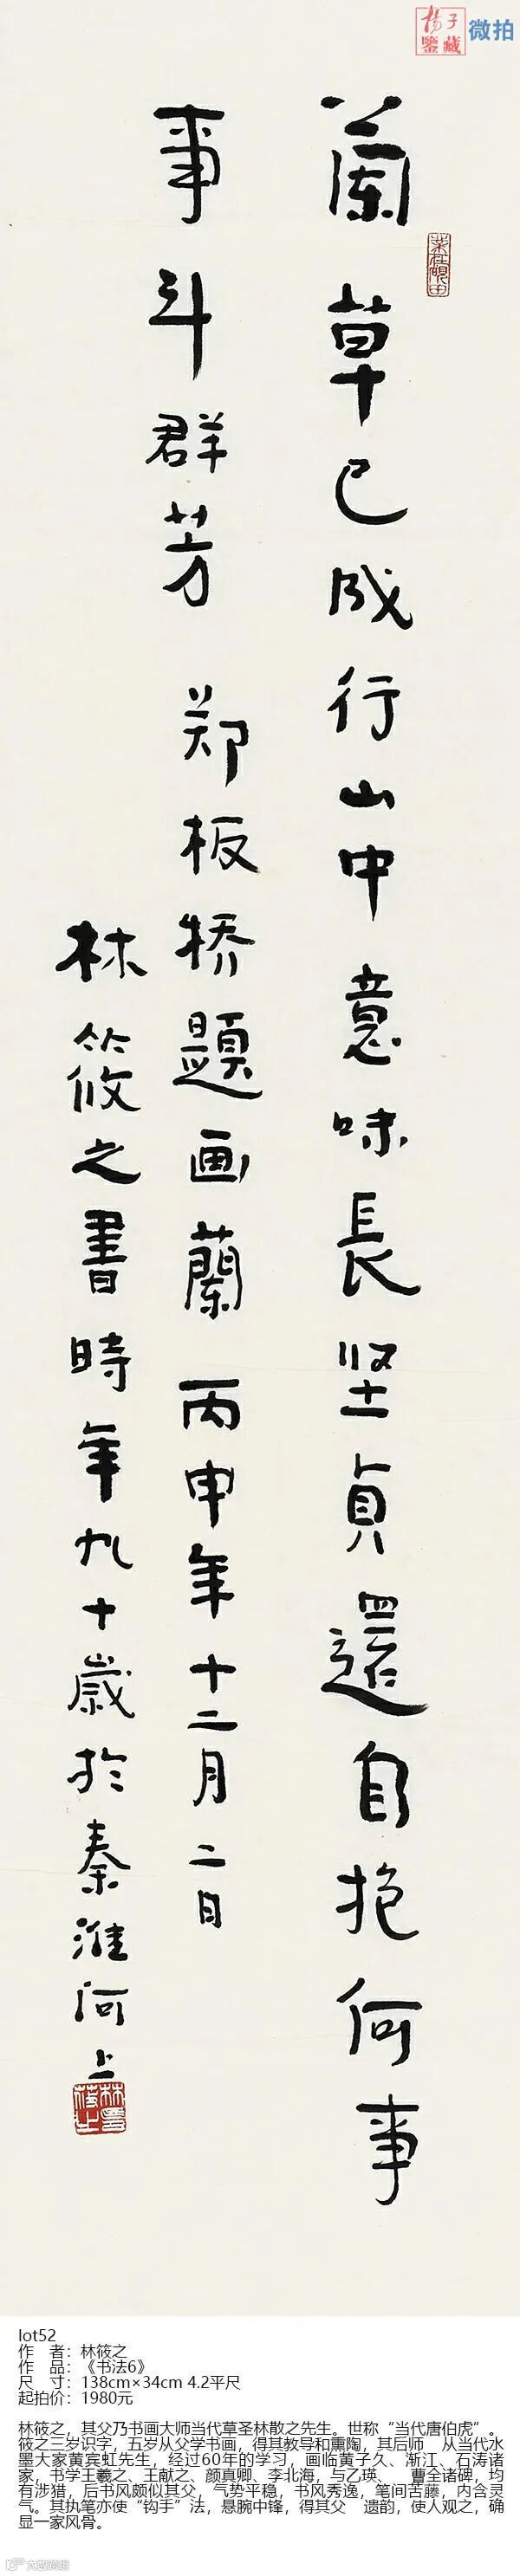 揚子
鑒藏
微拍
蘭草已成行山中意味長堅貞還自抱何事
事斗群芳 郑板桥題画蘭 丙申年十二月二日
林筱之書時年九十歲於秦淮河上
lot52
作 者：林筱之
作 品：《书法6》
尺 寸：138cm×34cm 4.2平尺
起拍价：1980元
林筱之，其父乃书画大师当代草圣林散之先生。世称“当代唐伯虎”。
筱之三岁识字，五岁从父学书画，得其教导和熏陶，其后师 从当代水
墨大家黄宾虹先生，经过60年的学习，画临黄子久、渐江、石涛诸
家，书学王羲之、王献之、颜真卿、李北海，与乙瑛、 曹全诸碑，均
有涉猎，后书风颇似其父，气势平稳，书风秀逸，笔间苦藤，内含灵
气。其执笔亦使“钩手”法，悬腕中锋，得其父 遗韵，使人观之，确
显一家风骨。